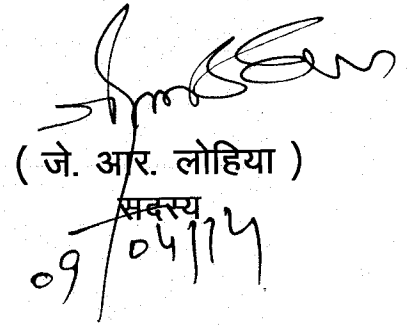 ( जे. आर. लोहिया )
सदस्य
09/04/14